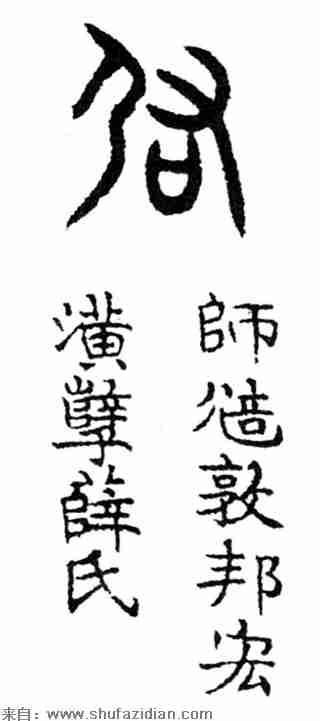 佑
師敦邦宏
潢孽薛氏
来自：www.shufazidian.com